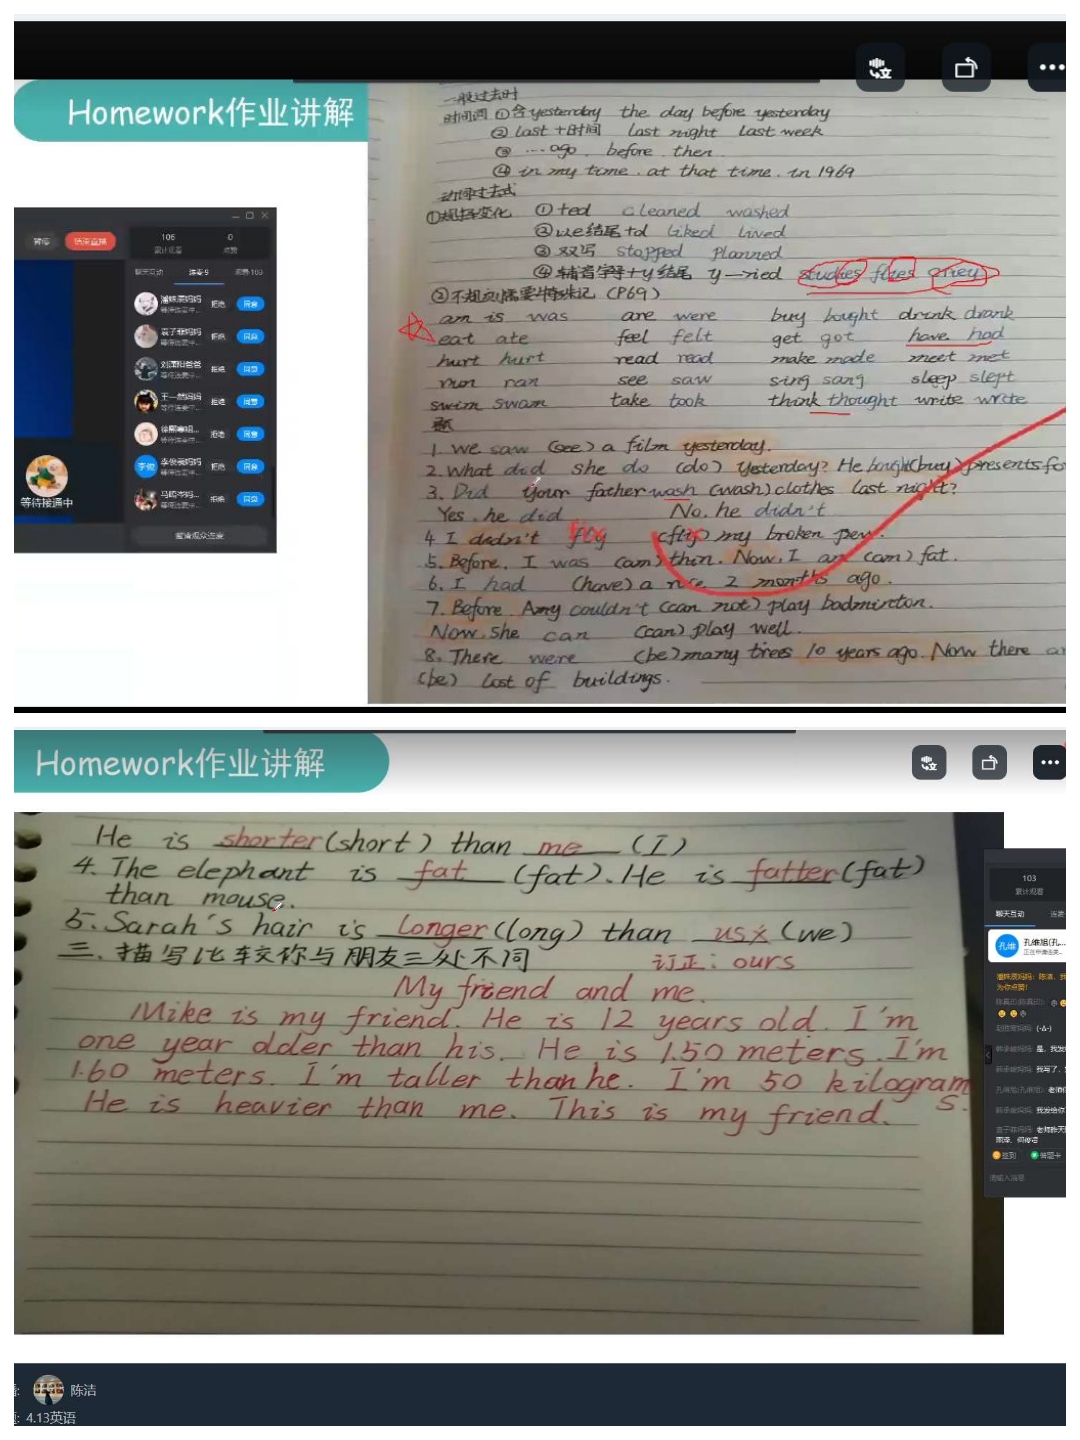 Homework作业讲解
一般过去时
时间词 ①含yesterday the day before yesterday
② last +时间 last night last week
③ ...ago . before . then
④ in my time . at that time . in 1969
动词过去式
①规则变化 ①+ed cleaned washed
②以e结尾+d liked lived
③ 双写 stopped planned
④辅音字母+y结尾 y—ied
②不规则需要特殊记 (P69)
am is was are were buy bought drink drank
eat ate feel felt get got have had
hurt hurt read read make made meet met
run ran see saw sing sang sleep slept
swim swam take took think thought write write
题
1. We saw (see) a film yesterday.
2. What did she do (do) yesterday? He bought(buy) presents fo
3. Did your father wash (wash) clothes last night?
Yes, he did No, he didn't
4. I didn't my broken pen.
5. Before, I was (am) thin. Now, I am (am) fat.
6. I had (have) a nice 2 months ago.
7. Before Amy couldn't (can not) play badminton.
Now, she can (can) play well.
8. There were (be) many trees 10 years ago. Now there a
(be) lost of buildings.
暂停
106
0
累计观看
点赞
聊天互动 连麦·9
拒绝 同意
拒绝 同意
刘潇阳爸爸 拒绝 同意
王一然妈妈 拒绝 同意
拒绝 同意
李俊 拒绝 同意
拒绝 同意
等待接通中
邀请观众连麦
Homework作业讲解
He is shorter(short) than me (I)
4. The elephant is fat (fat). He is fatter(fat)
than mouse.
5. Sarah's hair is longer(long) than us× (we)
三、描写比较你与朋友三处不同 订正：ours
My friend and me.
Mike is my friend. He is 12 years old. I'm
one year older than his. He is 1.50 meters. I'm
1.60 meters. I'm taller than he. I'm 50 kilogram
s.
He is heavier than me. This is my friend.
103
累计观看
聊天互动 连麦
孔维 孔维旭(孔...
签到 答题卡
请输入消息
陈洁
: 4.13英语